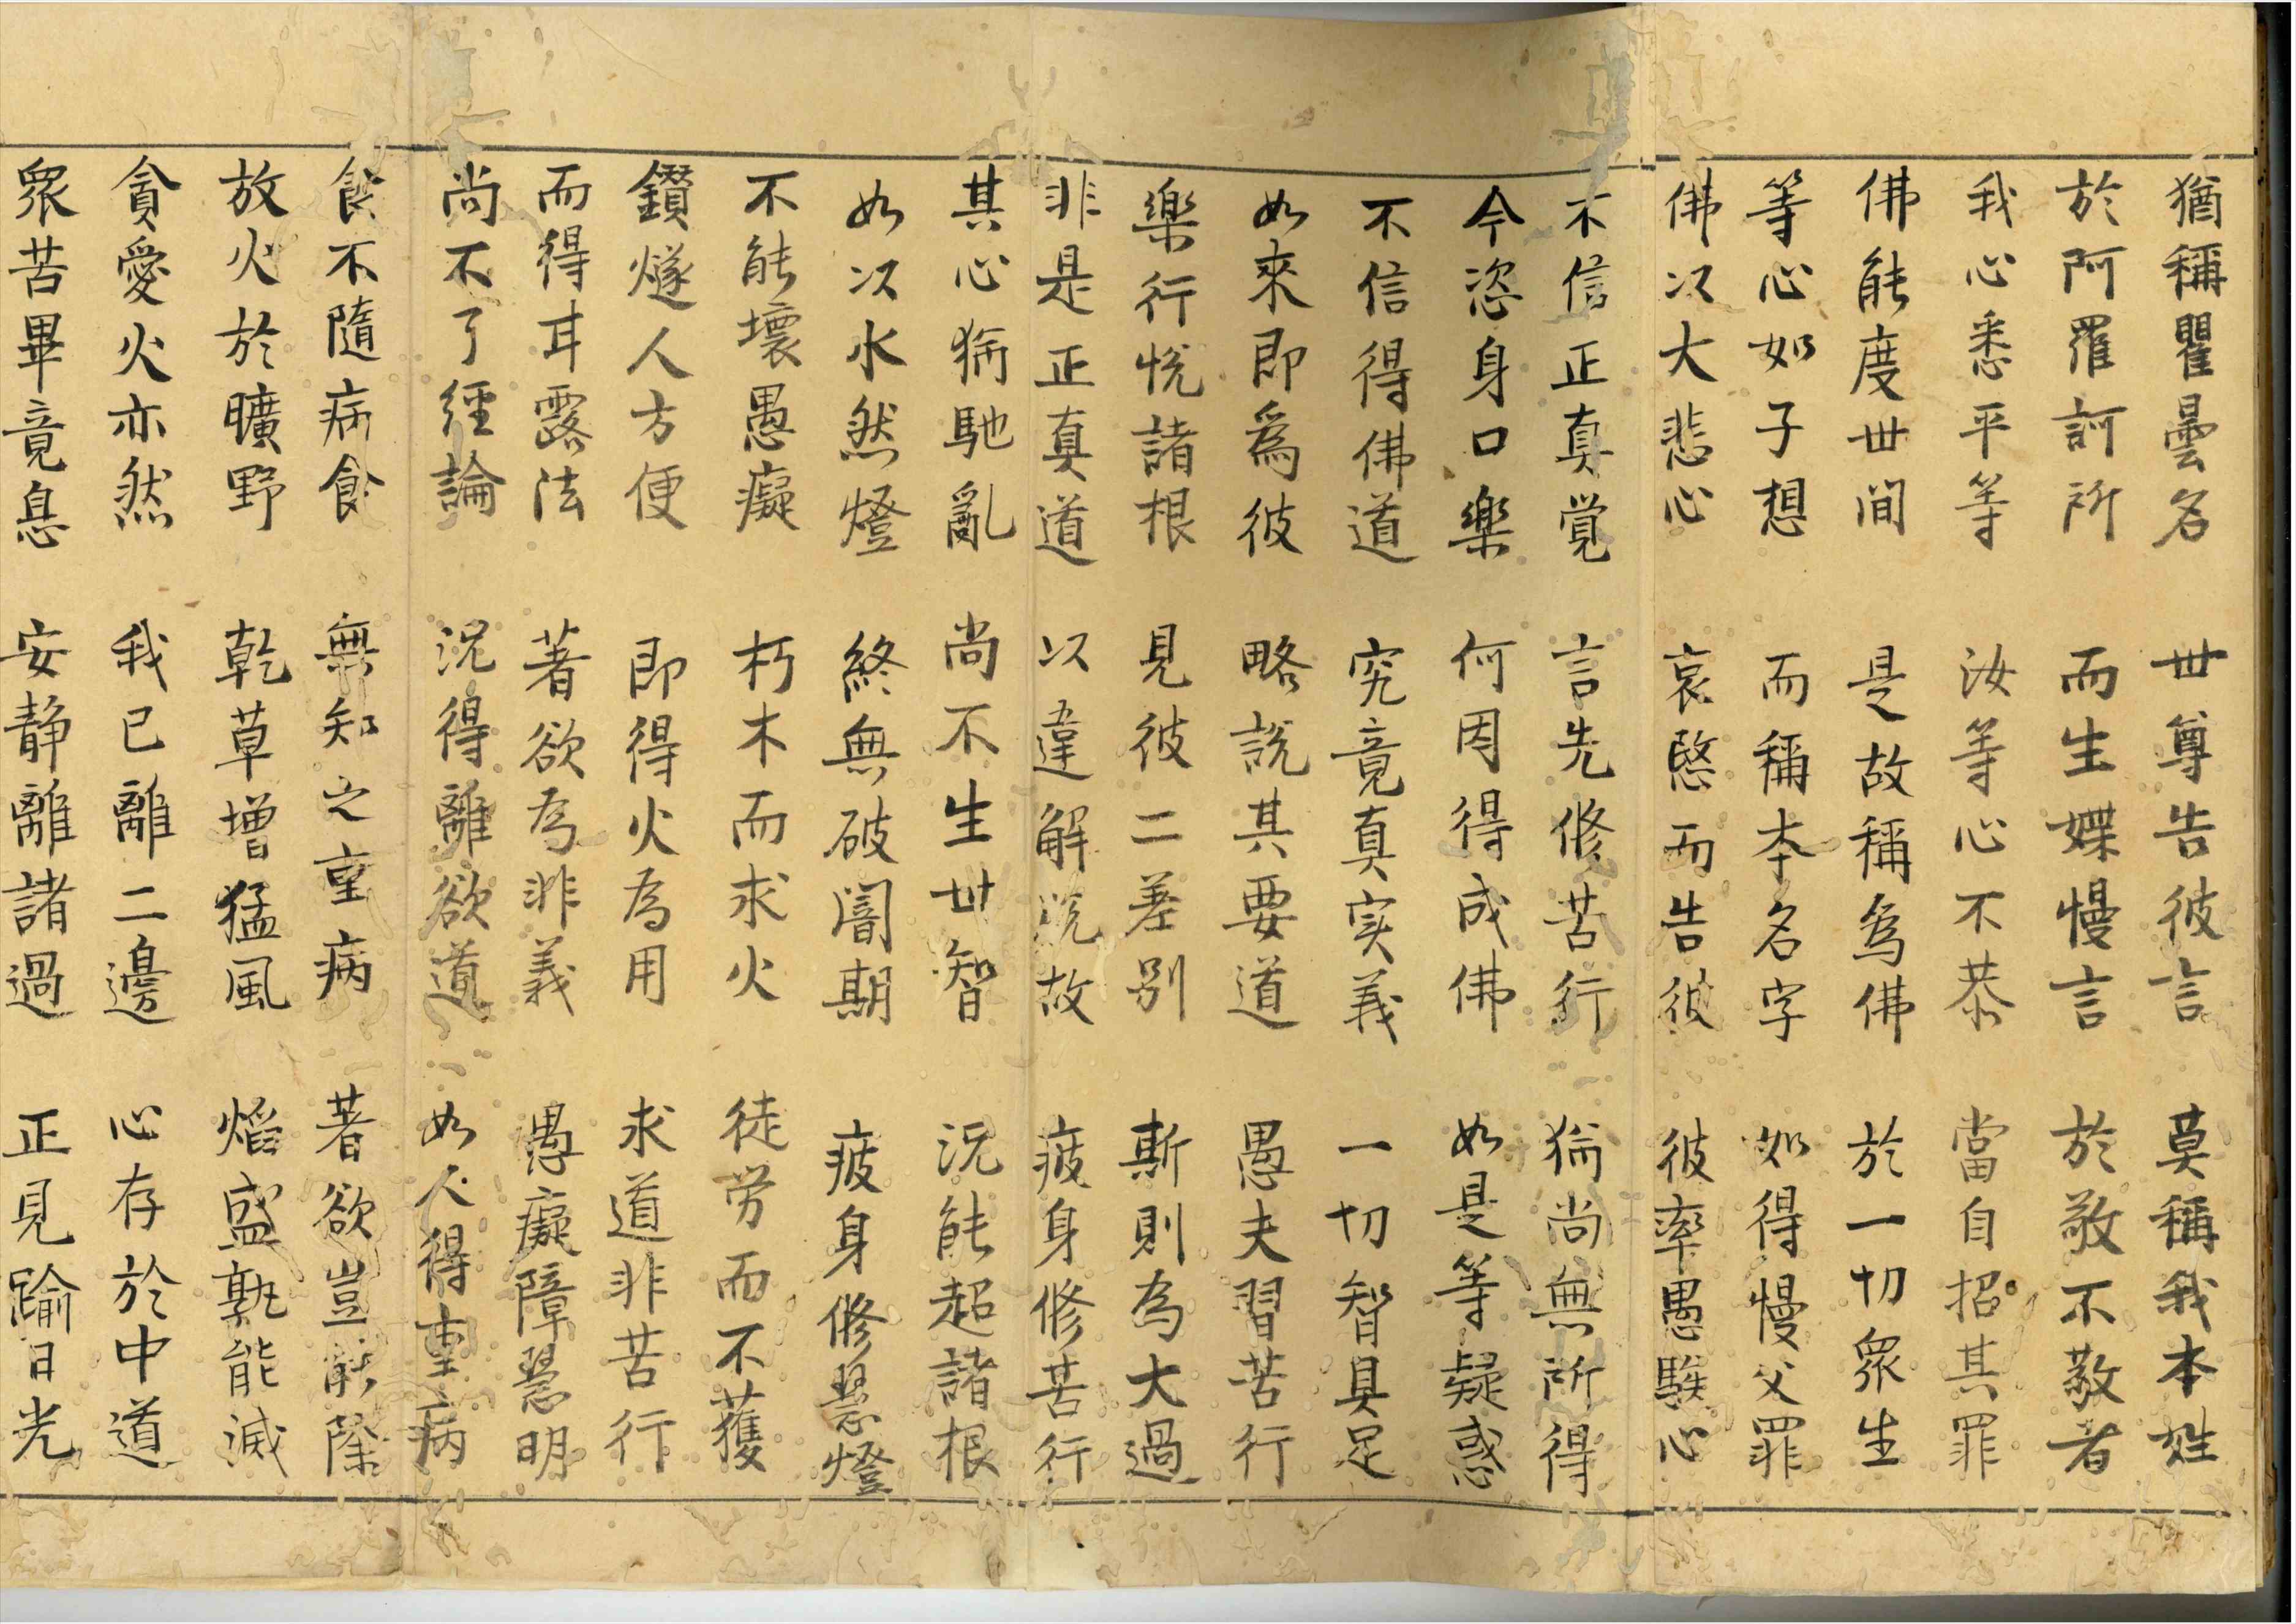 猶稱瞿曇名　世尊告彼言　莫稱我本姓
於阿羅訶所　而生媟慢言　於敬不敬者
我心悉平等　汝等心不恭　當自招其罪
佛能度世間　是故稱為佛　於一切眾生
等心如子想　而稱本名字　如得慢父罪
佛以大悲心　哀愍而告彼　彼率愚騃心
不信正真覺　言先修苦行　猶尚無所得
今恣身口樂　何因得成佛　如是等疑惑
不信得佛道　究竟真実義　一切智具足
如來即爲彼　略說其要道　愚夫習苦行
樂行悅諸根　見彼二差別　斯則為大過
非是正真道　以違解脫故　疲身修苦行
其心猶馳亂　尚不生世智　況能超諸根
如以水然燈　終無破闇期　疲身修慧燈
不能壞愚癡　朽木而求火　徒劳而不獲
鑽燧人方便　即得火為用　求道非苦行
而得甘露法　著欲為非義　愚癡障慧明
尚不了經論　況得離欲道　如人得重病
食不隨病食　無知之重病　著欲豈能除
放火於曠野　乾草增猛風　焰盛孰能滅
貪愛火亦然　我已離二邊　心存於中道
眾苦畢竟息　安静離諸過　正見踰日光